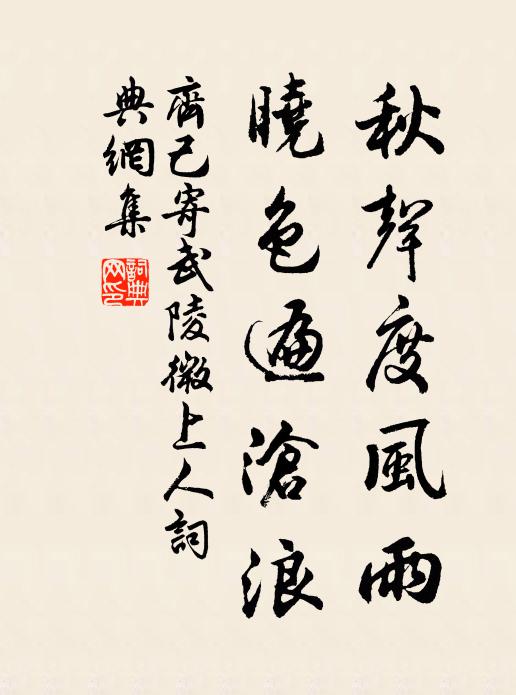 秋聲度風雨
曉色遍滄浪
齊己寄武陵微上人詞
典網集
詞典
网印